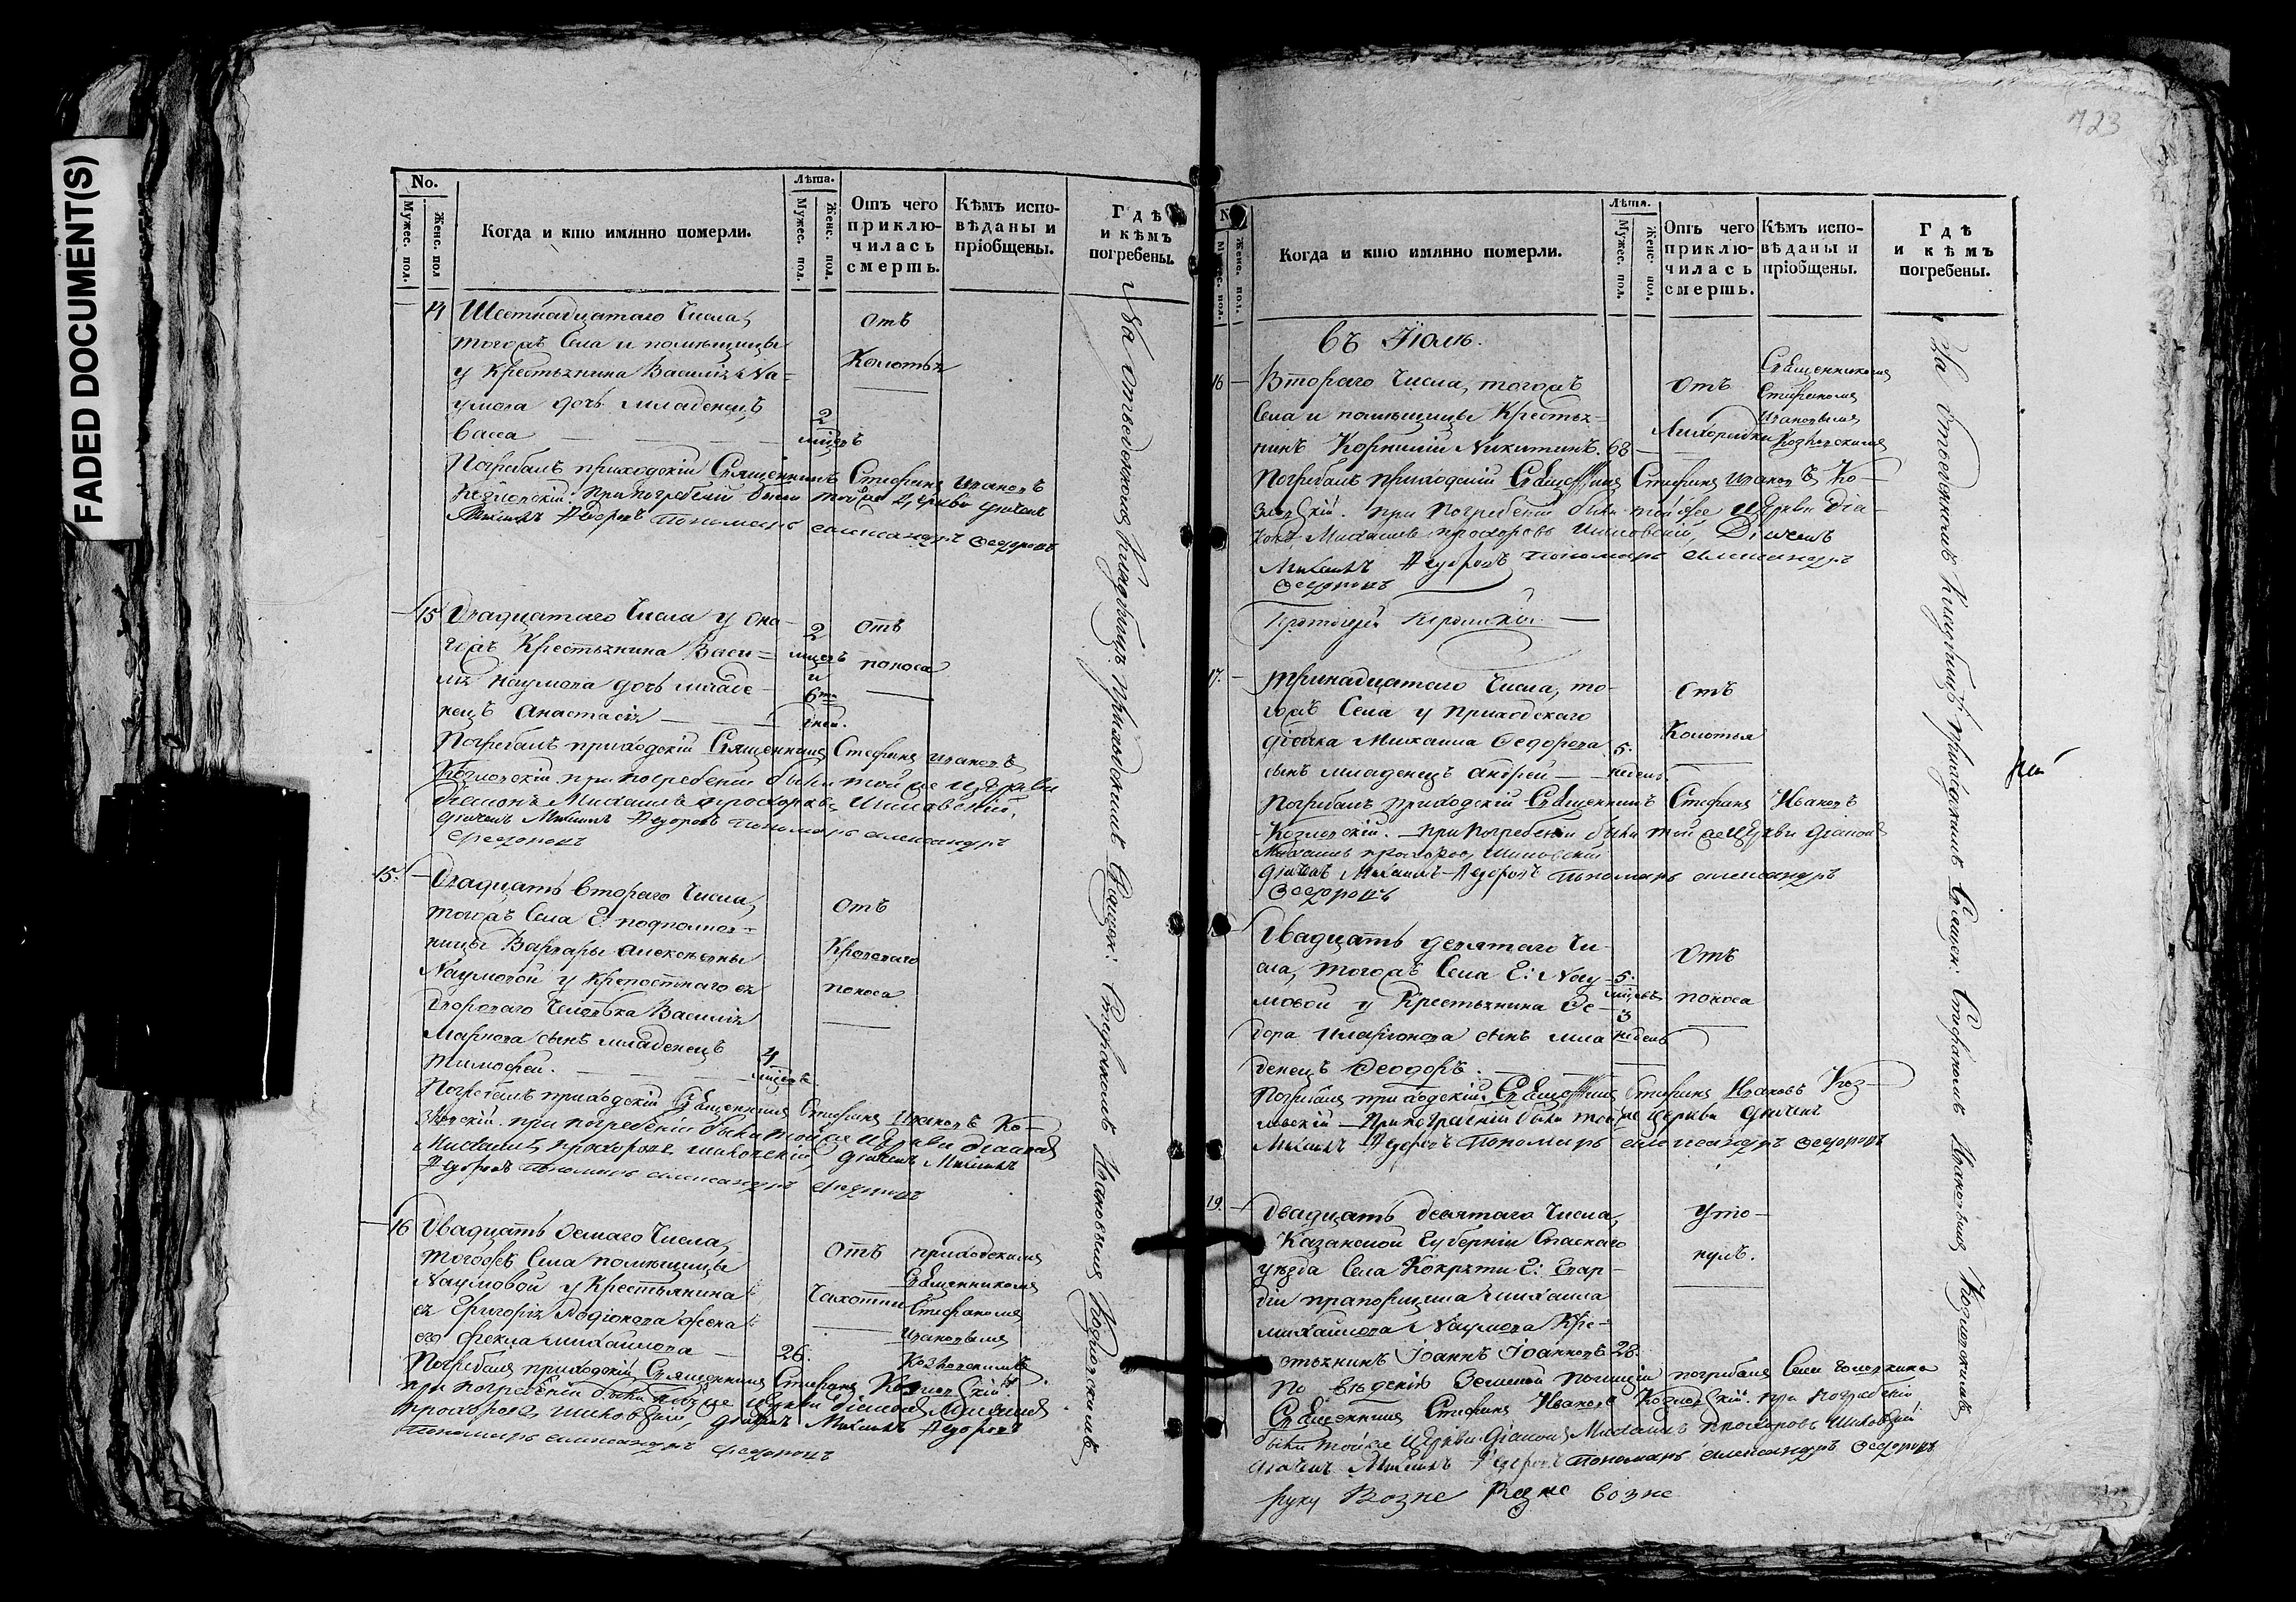 FADED DOCUMENT(S)
No.
Мужес. пол.
Женс. пол
Когда и кто имянно померли.
Лѣта.
Мужес. пол.
Женс. пол.
Отъ чего
приклю-
чилась
смерть.
Кѣмъ испо-
вѣданы и
пріобщены.
Гдѣ
и кѣмъ
погребены.
14
Шестнадцатаго Числа,
тогожъ Села и помѣщицы
у Крестьянина Василія На-
умова дочь младенецъ
Васса
2
мѣсцъ
отъ
Колотья
Погребалъ приходскій Священникъ Стефанъ Ивановъ
Козловскій. При погребеніи были тойже Церкви дьячекъ
Михаилъ Федоровъ Пономарь Александръ Федоровъ
15
Двадцатаго Числа у она-
гожъ Крестьянина Васи-
лія Наумова дочь младе-
нецъ Анастасія
2
мѣсцъ
и
6ть
дней.
отъ
поноса
Погребалъ приходскій Священникъ Стефанъ Ивановъ
Козловскій. при погребеніи были тойже Церкви
Діаконъ Михаилъ Прохоровъ Шиловскій,
дьячекъ Михаилъ Федоровъ Пономарь Александръ
Федоровъ
15.
Двадцать втораго Числа,
тогожъ Села Г: подполков-
ницы Варвары Алексѣевны
Наумовой у крепостнаго ея
двороваго Человѣка Василія
Маркова сынъ младенецъ
Тимофей.
4
мѣсцъ
отъ
Кроваваго
поноса
Погребалъ приходскій Священникъ Стефанъ Ивановъ Ко-
зловскій. при погребеніи были тойже Церкви діаконъ
Михаилъ Прохоровъ Шиловскій, дьячекъ Михаилъ
Федоровъ Пономарь Александръ Федоровъ
16
Двадцать осмаго Числа,
тогожъ Села помѣщицы
Наумовой у Крестьянина
ея Григорія Родіонова жена
его Фекла Михайлова
26.
отъ
Чахотки
приходскимъ
Священникомъ
Стефаномъ
Ивановымъ
Козловскимъ
Погребалъ приходскій Священникъ Стефанъ Козловскій
при погребеніи были тойже церкви діаконъ Михаилъ
Прохоровъ Шиловскій, дьячекъ Михаилъ Федоровъ
Пономарь Александръ Федоровъ
На отведенномъ кладбищѣ приходскимъ Священ: Стефаномъ Ивановымъ Козловскимъ
723
Мужес. пол.
Женс. пол.
Когда и кто имянно померли.
Лѣта.
Мужес. пол.
Женс. пол.
Отъ чего
приклю-
чилась
смерть.
Кѣмъ испо-
вѣданы и
пріобщены.
Гдѣ
и кѣмъ
погребены.
въ Іюлѣ.
16
Втораго Числа, тогожъ
Села и помѣщицы Крестья-
нинъ Корнилій Никитинъ.
68
отъ
Лихорадки
Священникомъ
Стефаномъ
Ивановымъ
Козловскимъ
Погребалъ приходскій Священникъ Стефанъ Ивановъ Ко-
зловскій. при погребеніи были тойже Церкви Діа-
конъ Михаилъ Прохоровъ Шиловскій, Дьячекъ
Михаилъ Федоровъ Пономарь Александръ
Федоровъ
Протоіерей
17.
Тринадцатаго Числа, то-
гожъ Села у приходскаго
дьячка Михаила Федорова
сынъ младенецъ Андрей
5.
недель.
отъ
Колотья
Погребалъ приходскій Священникъ Стефанъ Ивановъ
Козловскій. при погребеніи были тойже Церкви діаконъ
Михаилъ Прохоровъ Шиловскій
дьячекъ Михаилъ Федоровъ Пономарь Александръ
Федоровъ
Двадцать девятаго Чи-
сла, тогожъ Села Г: Нау-
мовой у Крестьянина Фе-
дора Иларіонова сынъ мла
денецъ Феодоръ.
5.
мѣсцъ
3
недель
отъ
поноса
Погребалъ приходскій Священникъ Стефанъ Ивановъ Коз-
ловскій При погребеніи были тойже церкви дьячекъ
Михаилъ Федоровъ Пономарь Александръ Федоровъ
19.
двадцать девятаго Числа,
Казанской Губерніи Спаскаго
уѣзда Села Кокряти Г: Гвар-
діи прапорщика Михаила
Михайлова Наумова Кре-
стьянинъ Іоаннъ Іоанновъ
28.
Уто-
нулъ.
По вѣденію Земской полиціи погребалъ
Священникъ Стефанъ Ивановъ Козловскій. при погребеніи
были тойже Церкви діаконъ Михаилъ Прохоровъ Шиловскій
дьячекъ Михаилъ Федоровъ Пономарь Александръ Федоровъ
На отведенномъ кладбищѣ приходскимъ Священ: Стефаномъ Ивановымъ Козловскимъ